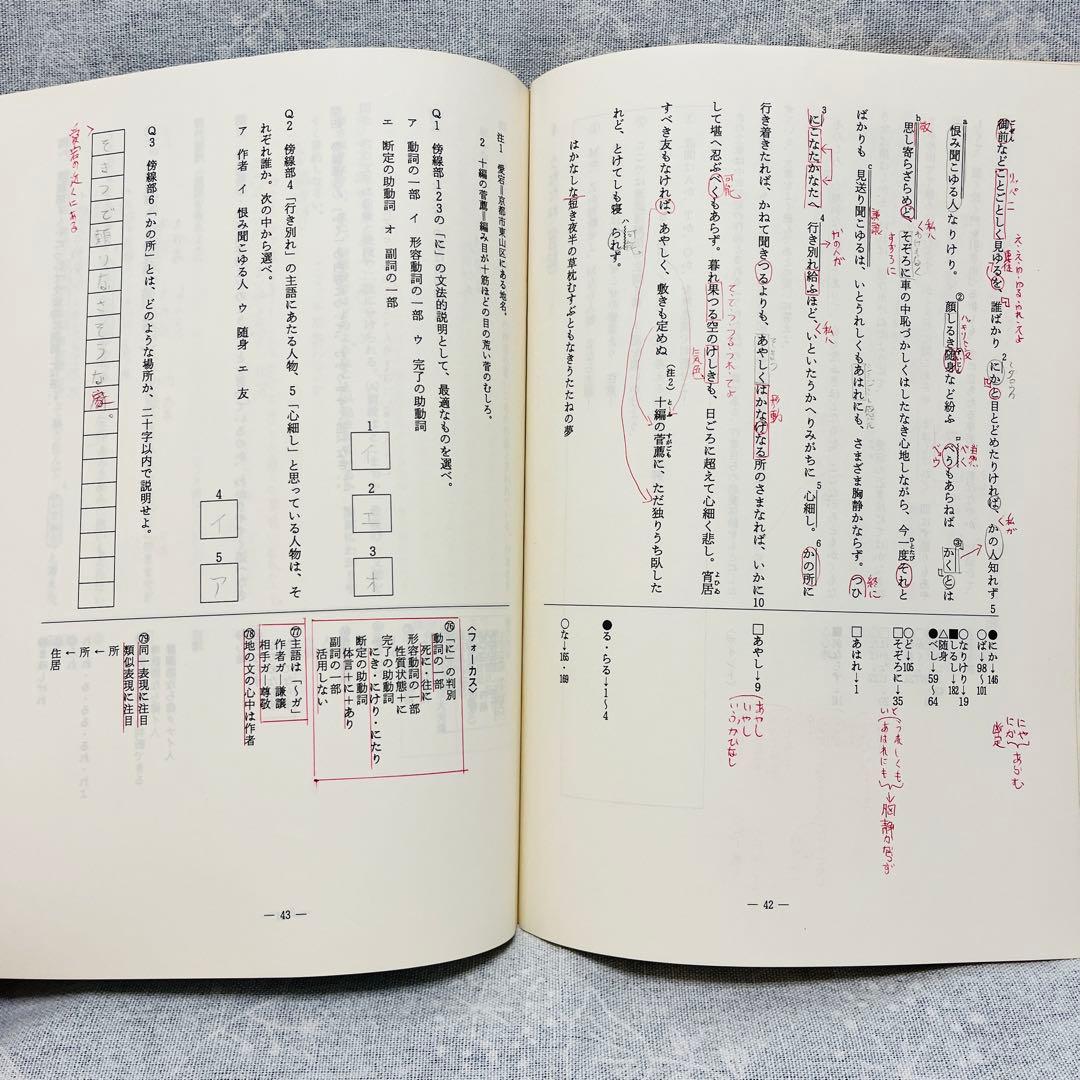 御前などことごとしく見ゆるを、誰ばかりにかと目とどめたりければ、かの人知れず
恨み聞こゆる人なりけり。顔しるき随身など紛ふべうもあらねば、かくとは
思し寄らざらめど、そぞろに車の中恥づかしくはしたなき心地しながら、今一度それと
ばかりも見送り聞こゆるは、いとうれしくもあはれにも、さまざま胸静かならず。つひ
にこなたかなたへ行き別れ給ふほど、いといたうかへりみがちに心細し。かの所に
行き着きたれば、かねて聞きつるよりも、あやしくはかなげなる所のさまなれば、いかに
して堪へ忍ぶべくもあらず。暮れ果つる空のけしきも、日ごろに超えて心細く悲し。宵居
すべき友もなければ、あやしく、敷きも定めぬ(注2)十編の菅薦に、ただ独りうち臥した
れど、とけてしも寝られず。
はかなしな短き夜半の草枕むすぶともなきうたたねの夢
注1 愛宕=京都市東山区にある地名。
2 十編の菅薦=編み目が十筋ほどの目の荒い菅のむしろ。
●にか→146
○ば→98〜101
○なりけり→19
■しるし→182
△随身
●べし→59〜64
○ど→105
□そぞろに→35
□あはれ→1
□あやし→9
●る・らる→1〜4
○な→165・169
にや
にか
あらむ
断定
あやし
いやし
いふかひなし
胸静かならず
— 42 —
Q1 傍線部123の「に」の文法的説明として、最適なものを選べ。
ア 動詞の一部 イ 形容動詞の一部 ウ 完了の助動詞
エ 断定の助動詞 オ 副詞の一部
1 イ
2 エ
3 オ
Q2 傍線部4「行き別れ」の主語にあたる人物、5「心細し」と思っている人物は、そ
れぞれ誰か。次の中から選べ。
ア 作者 イ 恨み聞こゆる人 ウ 随身 エ 友
4 イ
5 ア
Q3 傍線部6「かの所」とは、どのような場所か、二十字以内で説明せよ。
愛宕の近くにある
〈フォーカス〉
㊻「に」の判別
動詞の一部
死に・往に
形容動詞の一部
性質状態+に
完了の助動詞
にき・にけり・にたり
断定の助動詞
体言+に+あり
副詞の一部
活用しない
㊼主語は「〜ガ」
作者ガ―謙譲
相手ガ―尊敬
㊽地の文の心中は作者
㊾同一表現に注目
類似表現に注目
所
←
所
←
住居
— 43 —